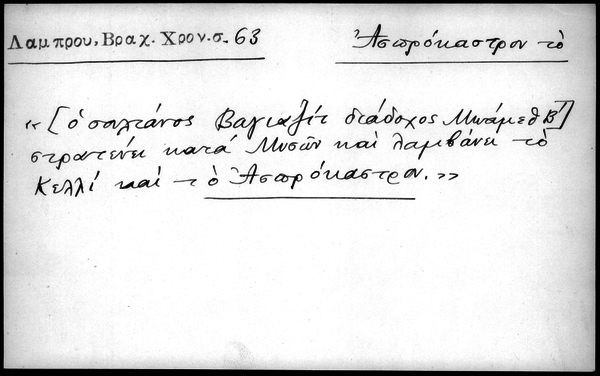 Λαμπρου, Βραχ. Χρον. σ. 63
Ἀσπρόκαστρον τὸ
« [ὁ σουλτάνος Βαγιαζίτ διάδοχος Μωάμεθ Β']
στρατεύει κατά Μυσῶν καὶ λαμβάνει τὸ
Κελλί καὶ τὸ Ἀσπρόκαστρον. »